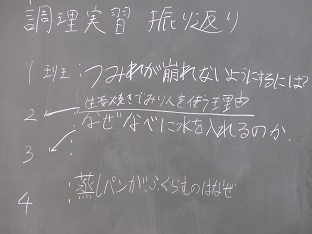 調理実習 振り返り
1班:つみれが崩れないようにするには?
2 生姜焼きでみりんを使う理由
: なぜなべに水を入れるのか.
3 :
4 :蒸しパンがふくらむのはなぜ